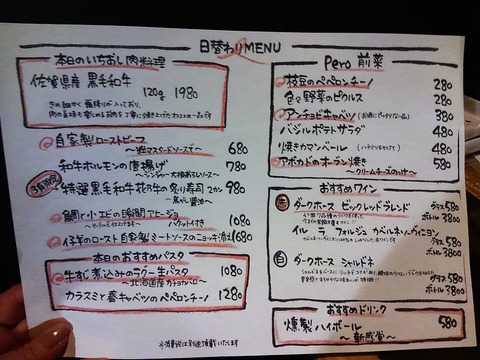 日替わりMENU
本日のいちおし肉料理
佐賀県産 黒毛和牛 120g 1980
きめ細かく 霜降りが入っており、
自家製ローストビーフ 680
～粒マスタードソースで～
和牛ホルモンの唐揚げ 780
特選黒毛和牛の炙り寿司 2カン 980
鯛と小エビの瞬間アヒージョ
バケット付き 1080
仔羊のロースト自家製ミートソースのニョッキ添え 1680
本日のおすすめパスタ
牛すじ煮込みのラグー生パスタ 1080
～北海道産カチョカバロ～
カラスミと春キャベツのペペロンチーノ 1280
※消費税は別途頂戴いたします
Pero 前菜
枝豆のペペロンチーノ 280
色々野菜のピクルス 280
アンチョビキャベツ (お酒にピッタリな一品) 380
バジルポテトサラダ 480
焼きカマンベール (ハチミツをかけて) 480
アボカドのオーブン焼き 580
～クリームチーズのっけ～
おすすめワイン
赤 ダークホース ビックレッドブレンド グラス 580
ボトル 3800
イル ラ フォルジュ カベルネ・ソーヴィニヨン グラス 580
ボトル 3800
白 ダークホース シャルドネ
グラス 580
ボトル 3800
おすすめドリンク
燻製ハイボール 580
～新感覚～